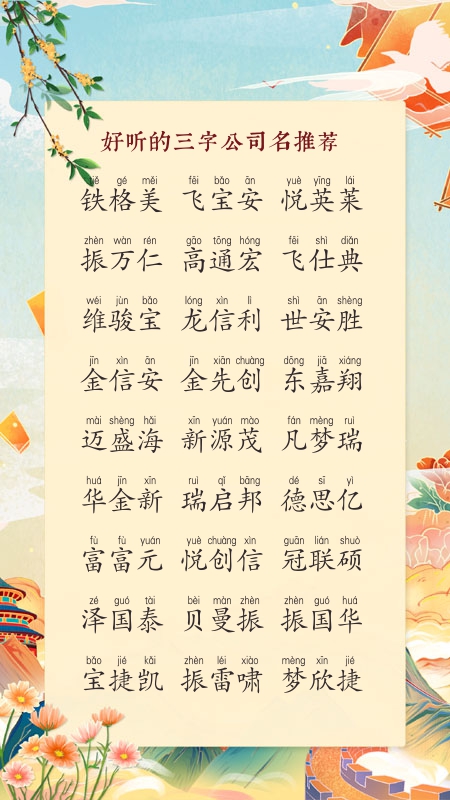 好听的三字公司名推荐
tiě gé měi fēi bǎo ān yuè yīng lái
铁格美 飞宝安 悦英莱
zhèn wàn rén gāo tōng hóng fēi shì diǎn
振万仁 高通宏 飞仕典
wéi jùn bǎo lóng xìn lì shì ān shèng
维骏宝 龙信利 世安胜
jīn xìn ān jīn xiān chuàng dōng jiā xiáng
金信安 金先创 东嘉翔
mài shèng hǎi xīn yuán mào fán mèng ruì
迈盛海 新源茂 凡梦瑞
huá jīn xīn ruì qǐ bāng dé sī yì
华金新 瑞启邦 德思亿
fù fù yuán yuè chuàng xìn guān lián shuò
富富元 悦创信 冠联硕
zé guó tài bèi màn zhèn zhèn guó huá
泽国泰 贝曼振 振国华
bǎo jié kǎi zhèn léi xiào mèng xīn jié
宝捷凯 振雷啸 梦欣捷